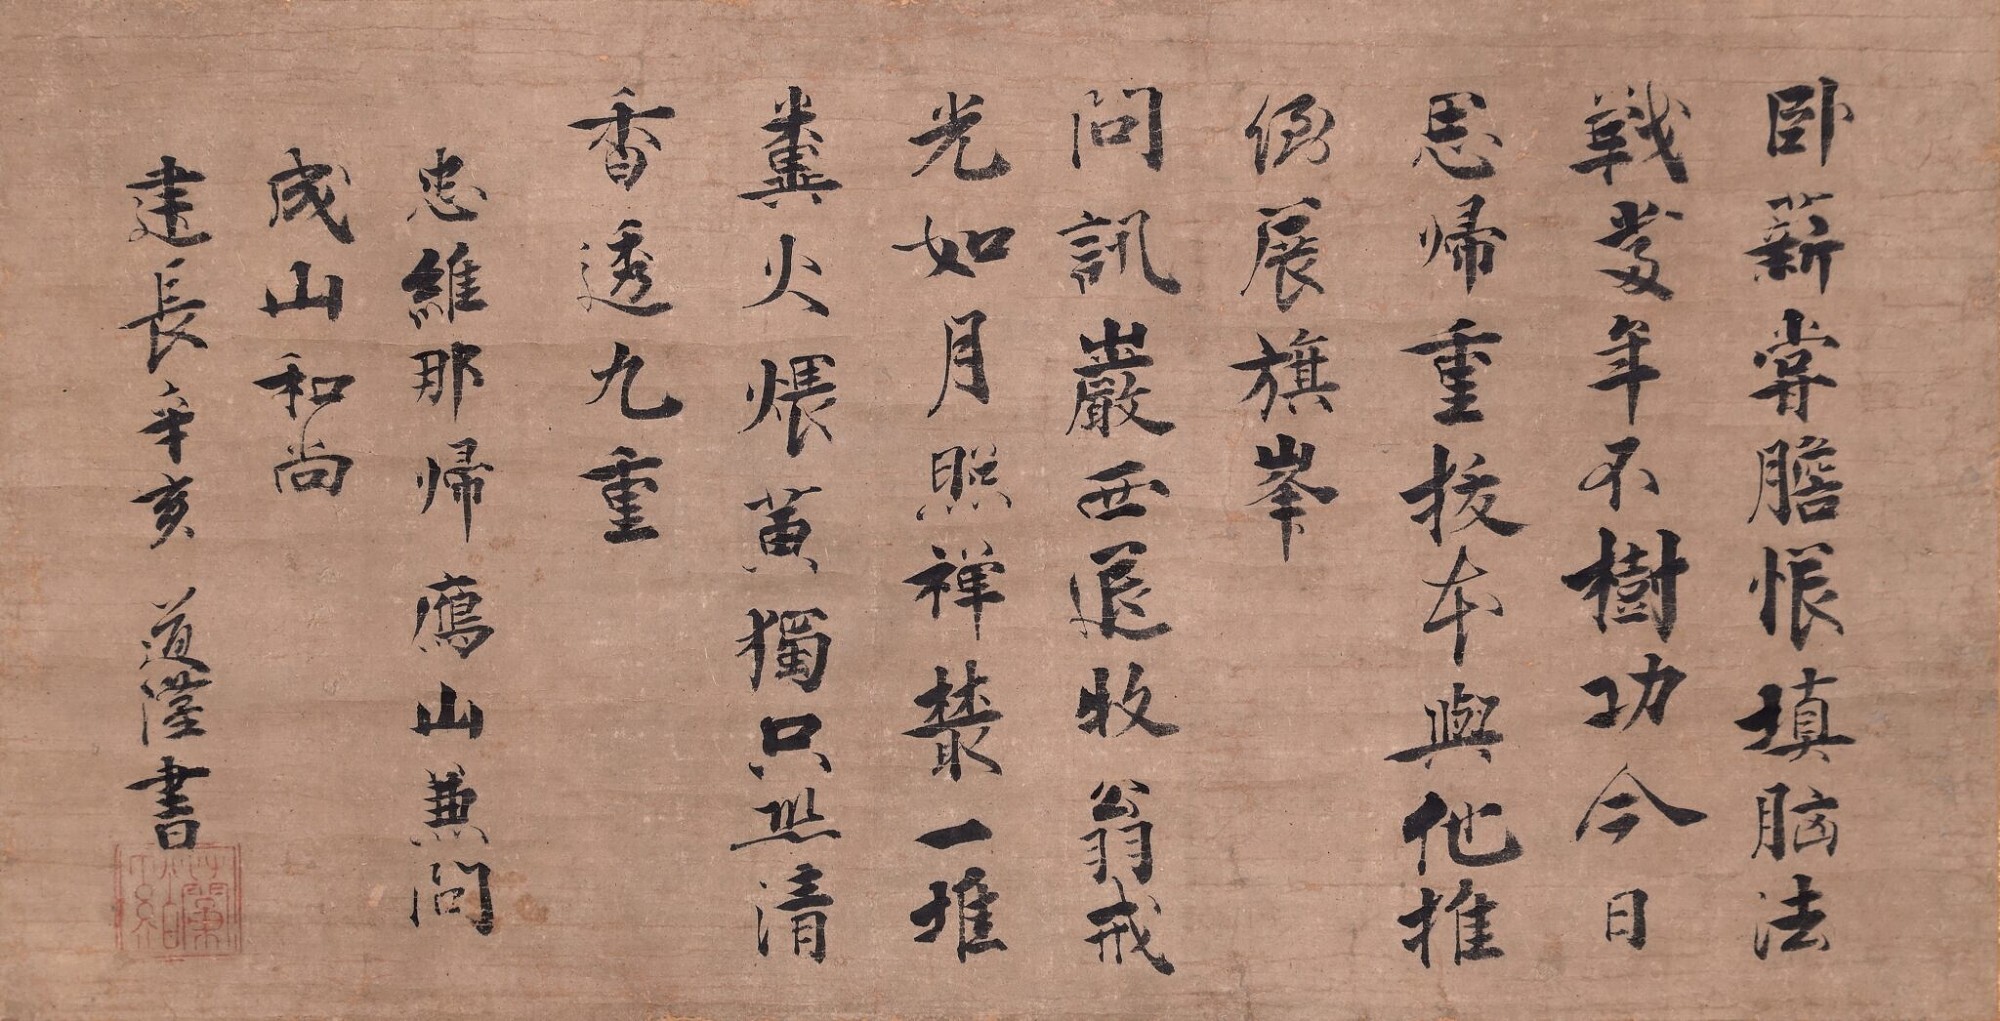 卧薪甞膽悵填脑法
戦發年不樹功今日
思帰重拔本與他推
倒展旗峯
問訊巖西退牧翁戒
光如月照禅叢一堆
糞火煨黄獨只恐清
香透九重
忠維那帰鷹山兼問
成山和尚
建長辛亥 道隆書